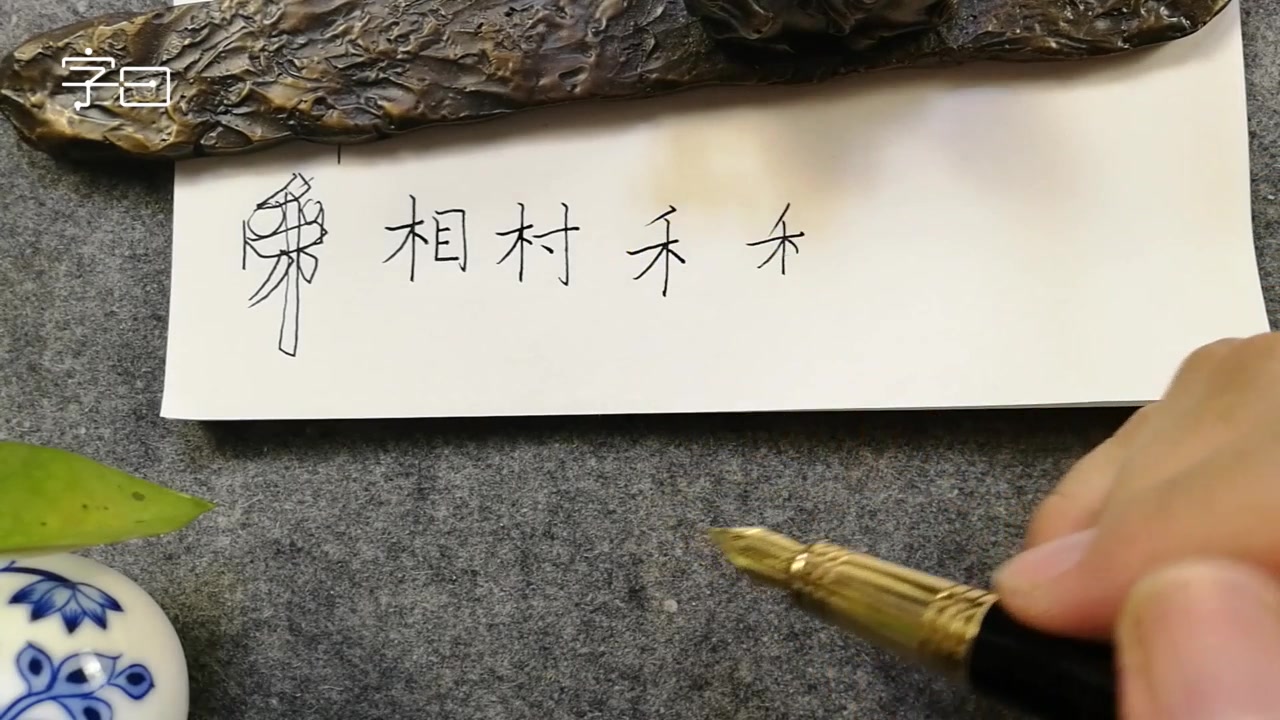 字曰
相 村 禾 禾